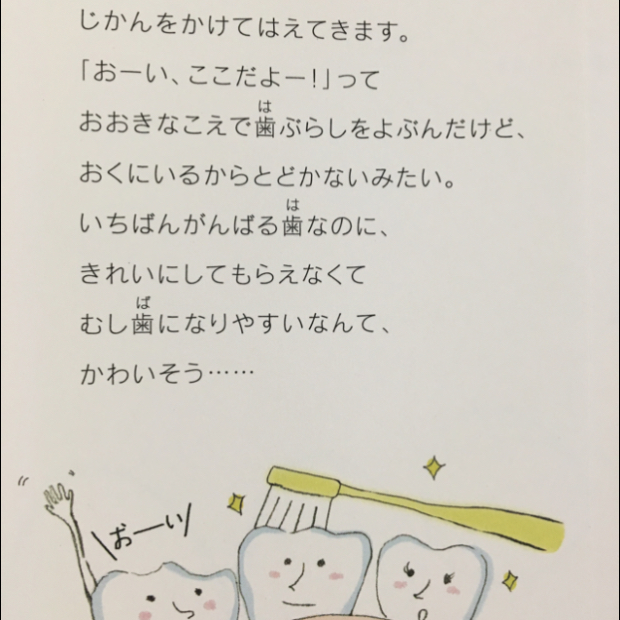 じかんをかけてはえてきます。
「おーい、ここだよー!」って
は
おおきなこえで歯ぶらしをよぶんだけど、
おくにいるからとどかないみたい。
は
いちばんがんばる歯なのに、
きれいにしてもらえなくて
ば
むし歯になりやすいなんて、
かわいそう……
おーい